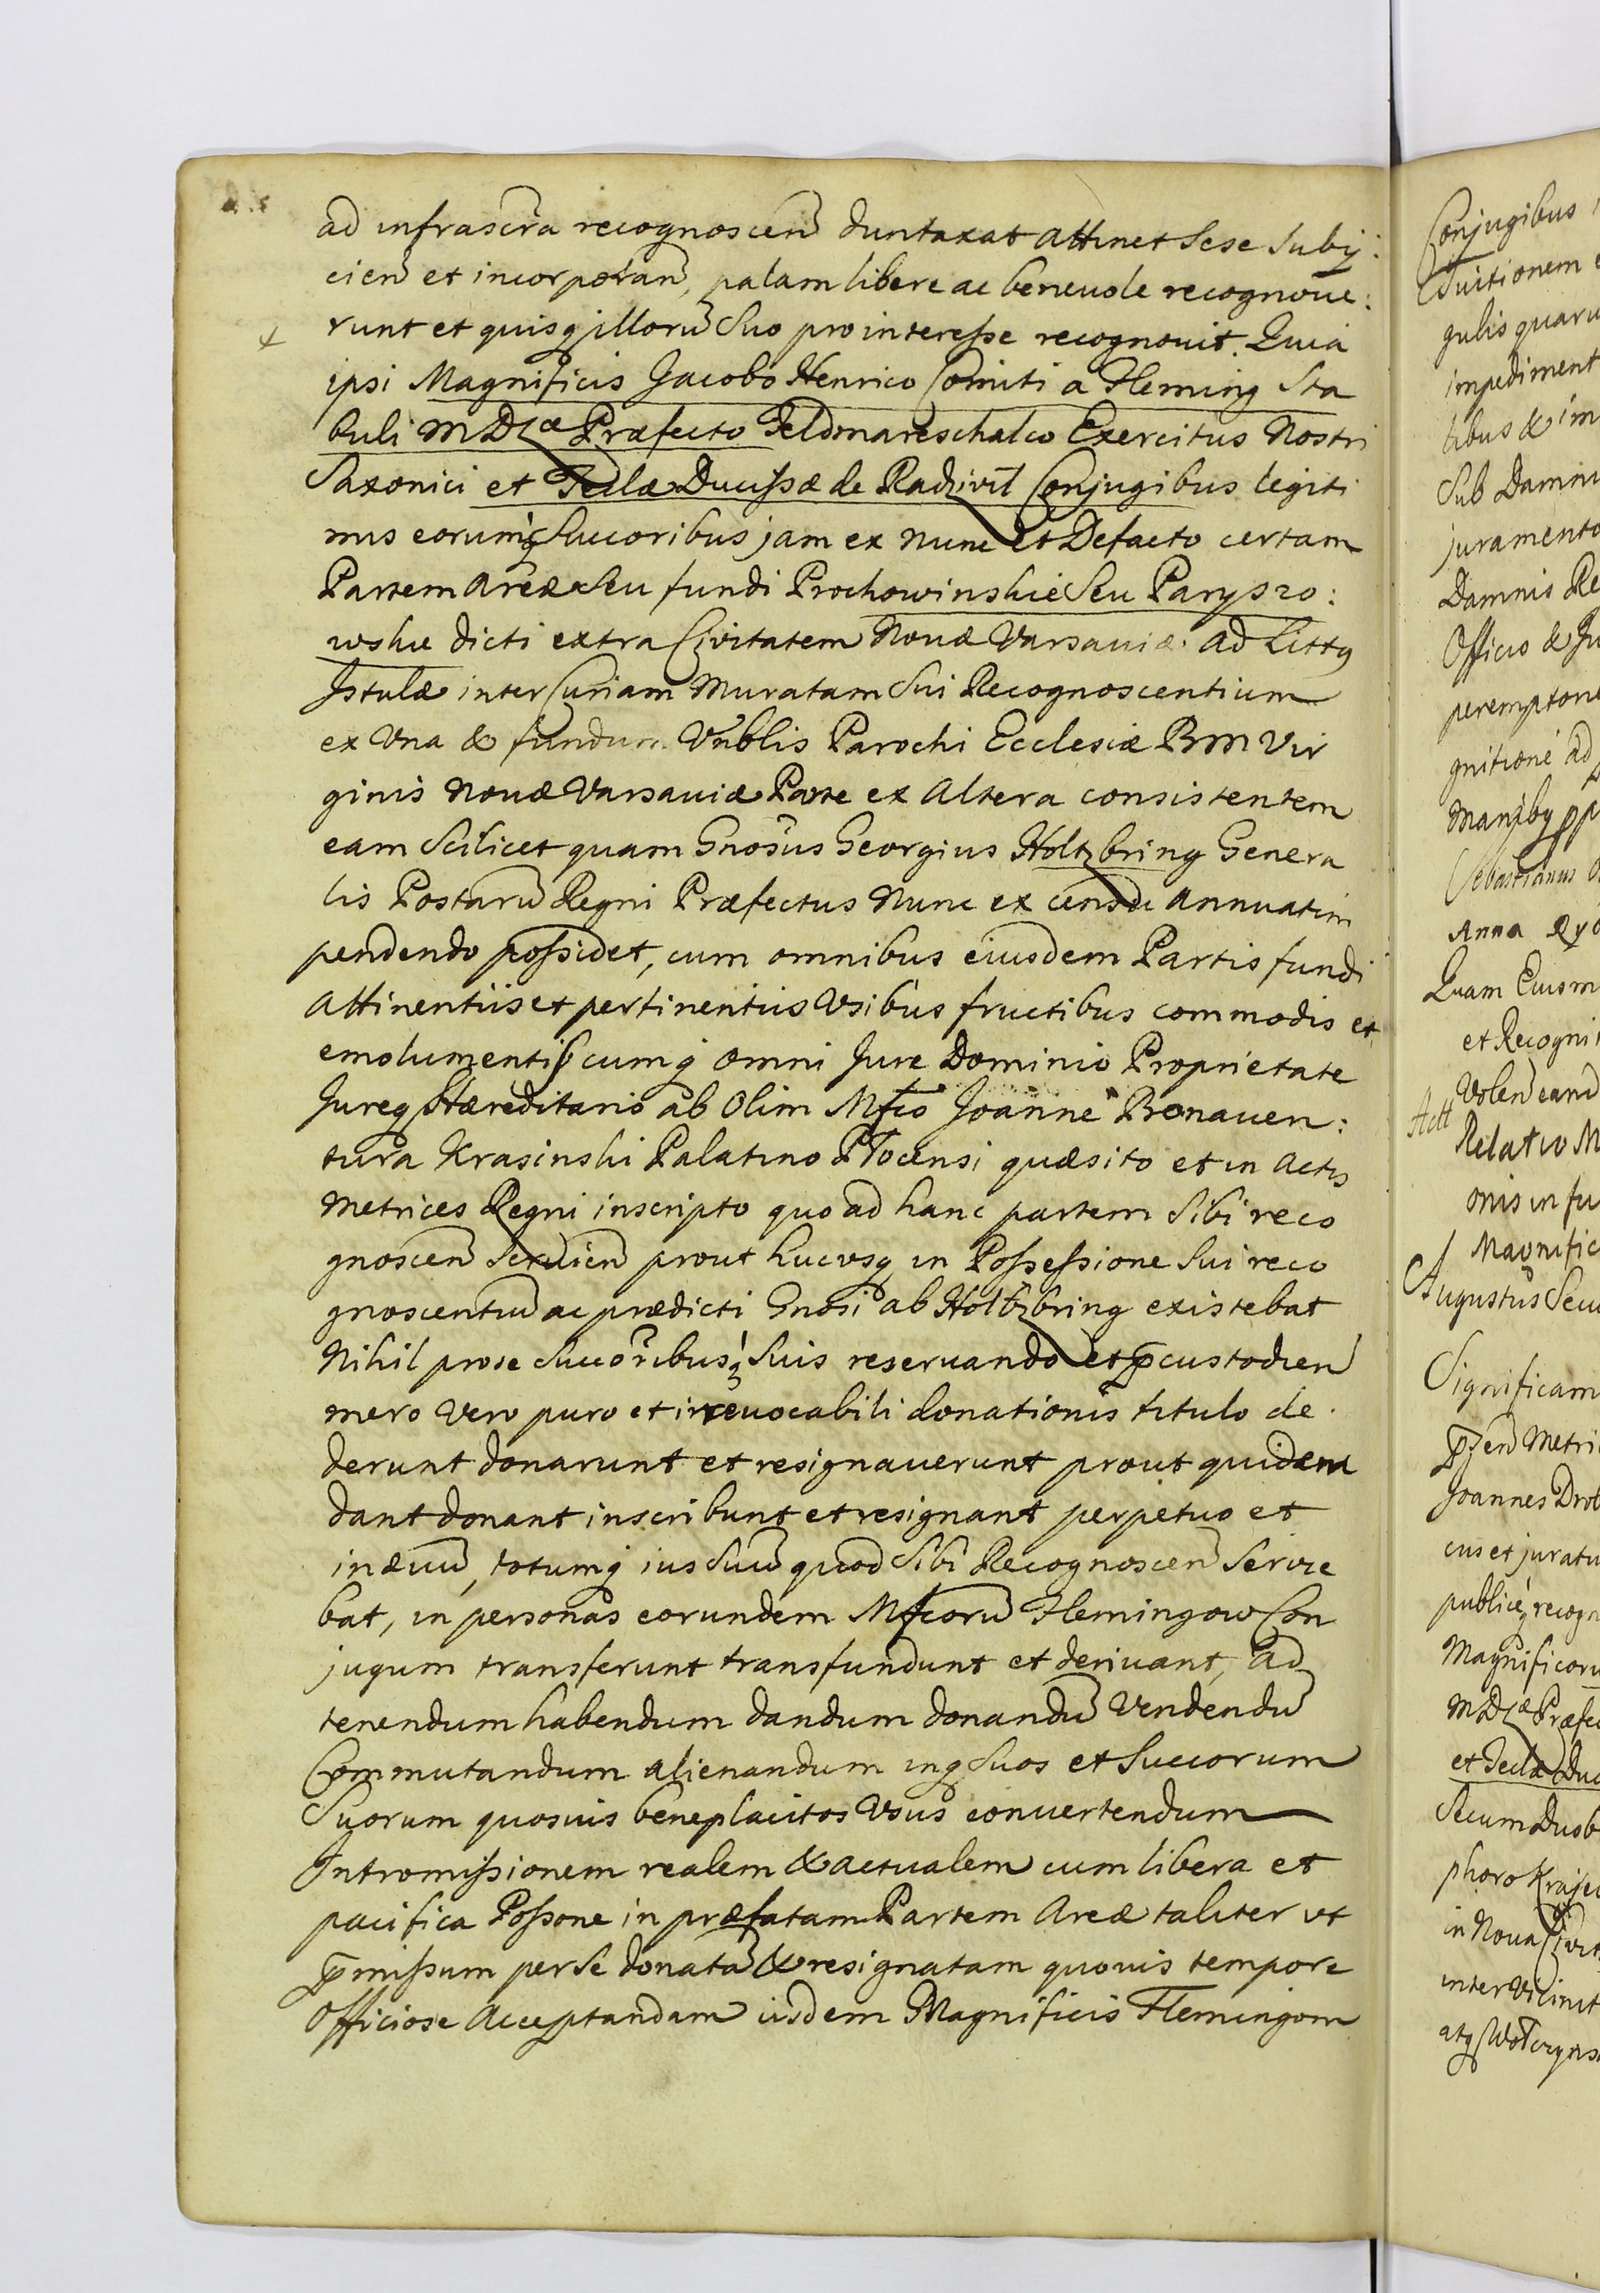 ad infrascra recognoscen duntaxat attinet sese subij:
cien et incorporan, palam libere ac beneuole recognoue:
runt et quisq illoru suo pro interesse recognouit. Quia
ipsi Magnificis Jacobo Henrico Comiti a Fleming Sta
buli MDLæ Præfecto Feldmareschalco Exercitus Nostri
Saxonici et Teclæ Ducissæ de Radzivil Conjugibus legiti
mis eorumq Succoribus jam ex nunc et Defacto certam
Partem Areæ seu fundi Prochowinskie seu Paryszo:
wskie dicti extra Civitatem Nouæ Varsauiæ ad Littq
Istulæ inter Curiam Muratam Sui Recognoscentium
ex Vna & fundum Vnblis Parochi Ecclesiæ BM Vir
ginis Nouæ Varsauiæ Parte ex Altera consistentem
eam Scilicet quam Gnosus Georgius Holtzbring Genera
lis Postaru Regni Præfectus Nunc ex censu Annuatim
pendendo possidet, cum omnibus eiusdem Partis fundi
Attinentiis et pertinentiis Vsibus fructibus commodis et
emolumentis cumq omni Jure Dominio Proprietate
Jureq Hæreditario ab Olim Mfco Joanne Bonauen:
tura Krasinski Palatino Plocensi quæsito et in Actis
Metrices Regni inscripto quo ad hanc partem Sibi reco
gnoscen seruien prout hucusq in Possessione Sui reco
gnoscentiu ac prædicti Gnosi ab Holtzbring existebat
Nihil prose Succoribusq Suis reseruando et pcustodien
mero Vero puro et irreuocabili donationis titulo de
derunt donarunt et resignauerunt prout quidem
dant donant inscribunt et resignant perpetuo et
in æuu, totumq ius Suu quod Sibi Recognoscen Servie
bat, in personas eorundem Mfcoru Flemingow Con
jugum transferunt transfundunt et deriuant, Ad
tenendum habendum dandum donandu Vendendu
Commutandum alienandum inq Suos et Succorum
Suorum quosuis beneplacitos Vsus conuertendum
Intromissionem realem & actualem cum libera et
pacifica Possone in præfatam Partem Areæ taliter vt
pmissum per Se donata & resignatam quouis tempore
Officiose Acceptandam iisdem Magnificis Flemingom
Conjugibus
Euitionem
gulis quaru
impediment
tibus & im
Sub Damni
juramento
Damnis Re
Officio & Ju
peremptorie
gnitione ad
Sebastianus
Anna
Quam Eiusm
et Recogni
Volen eand
Relatio M
onis in fu
Magnific
Augustus Secu
Significam
pzen Metri
Joannes Drob
cus et juratu
publice recogn
Magnificoru
MDLæ Præfe
et Tecla Duc
Secum Duob
phoro Krajew
in Noua Civit
inter Vicinit